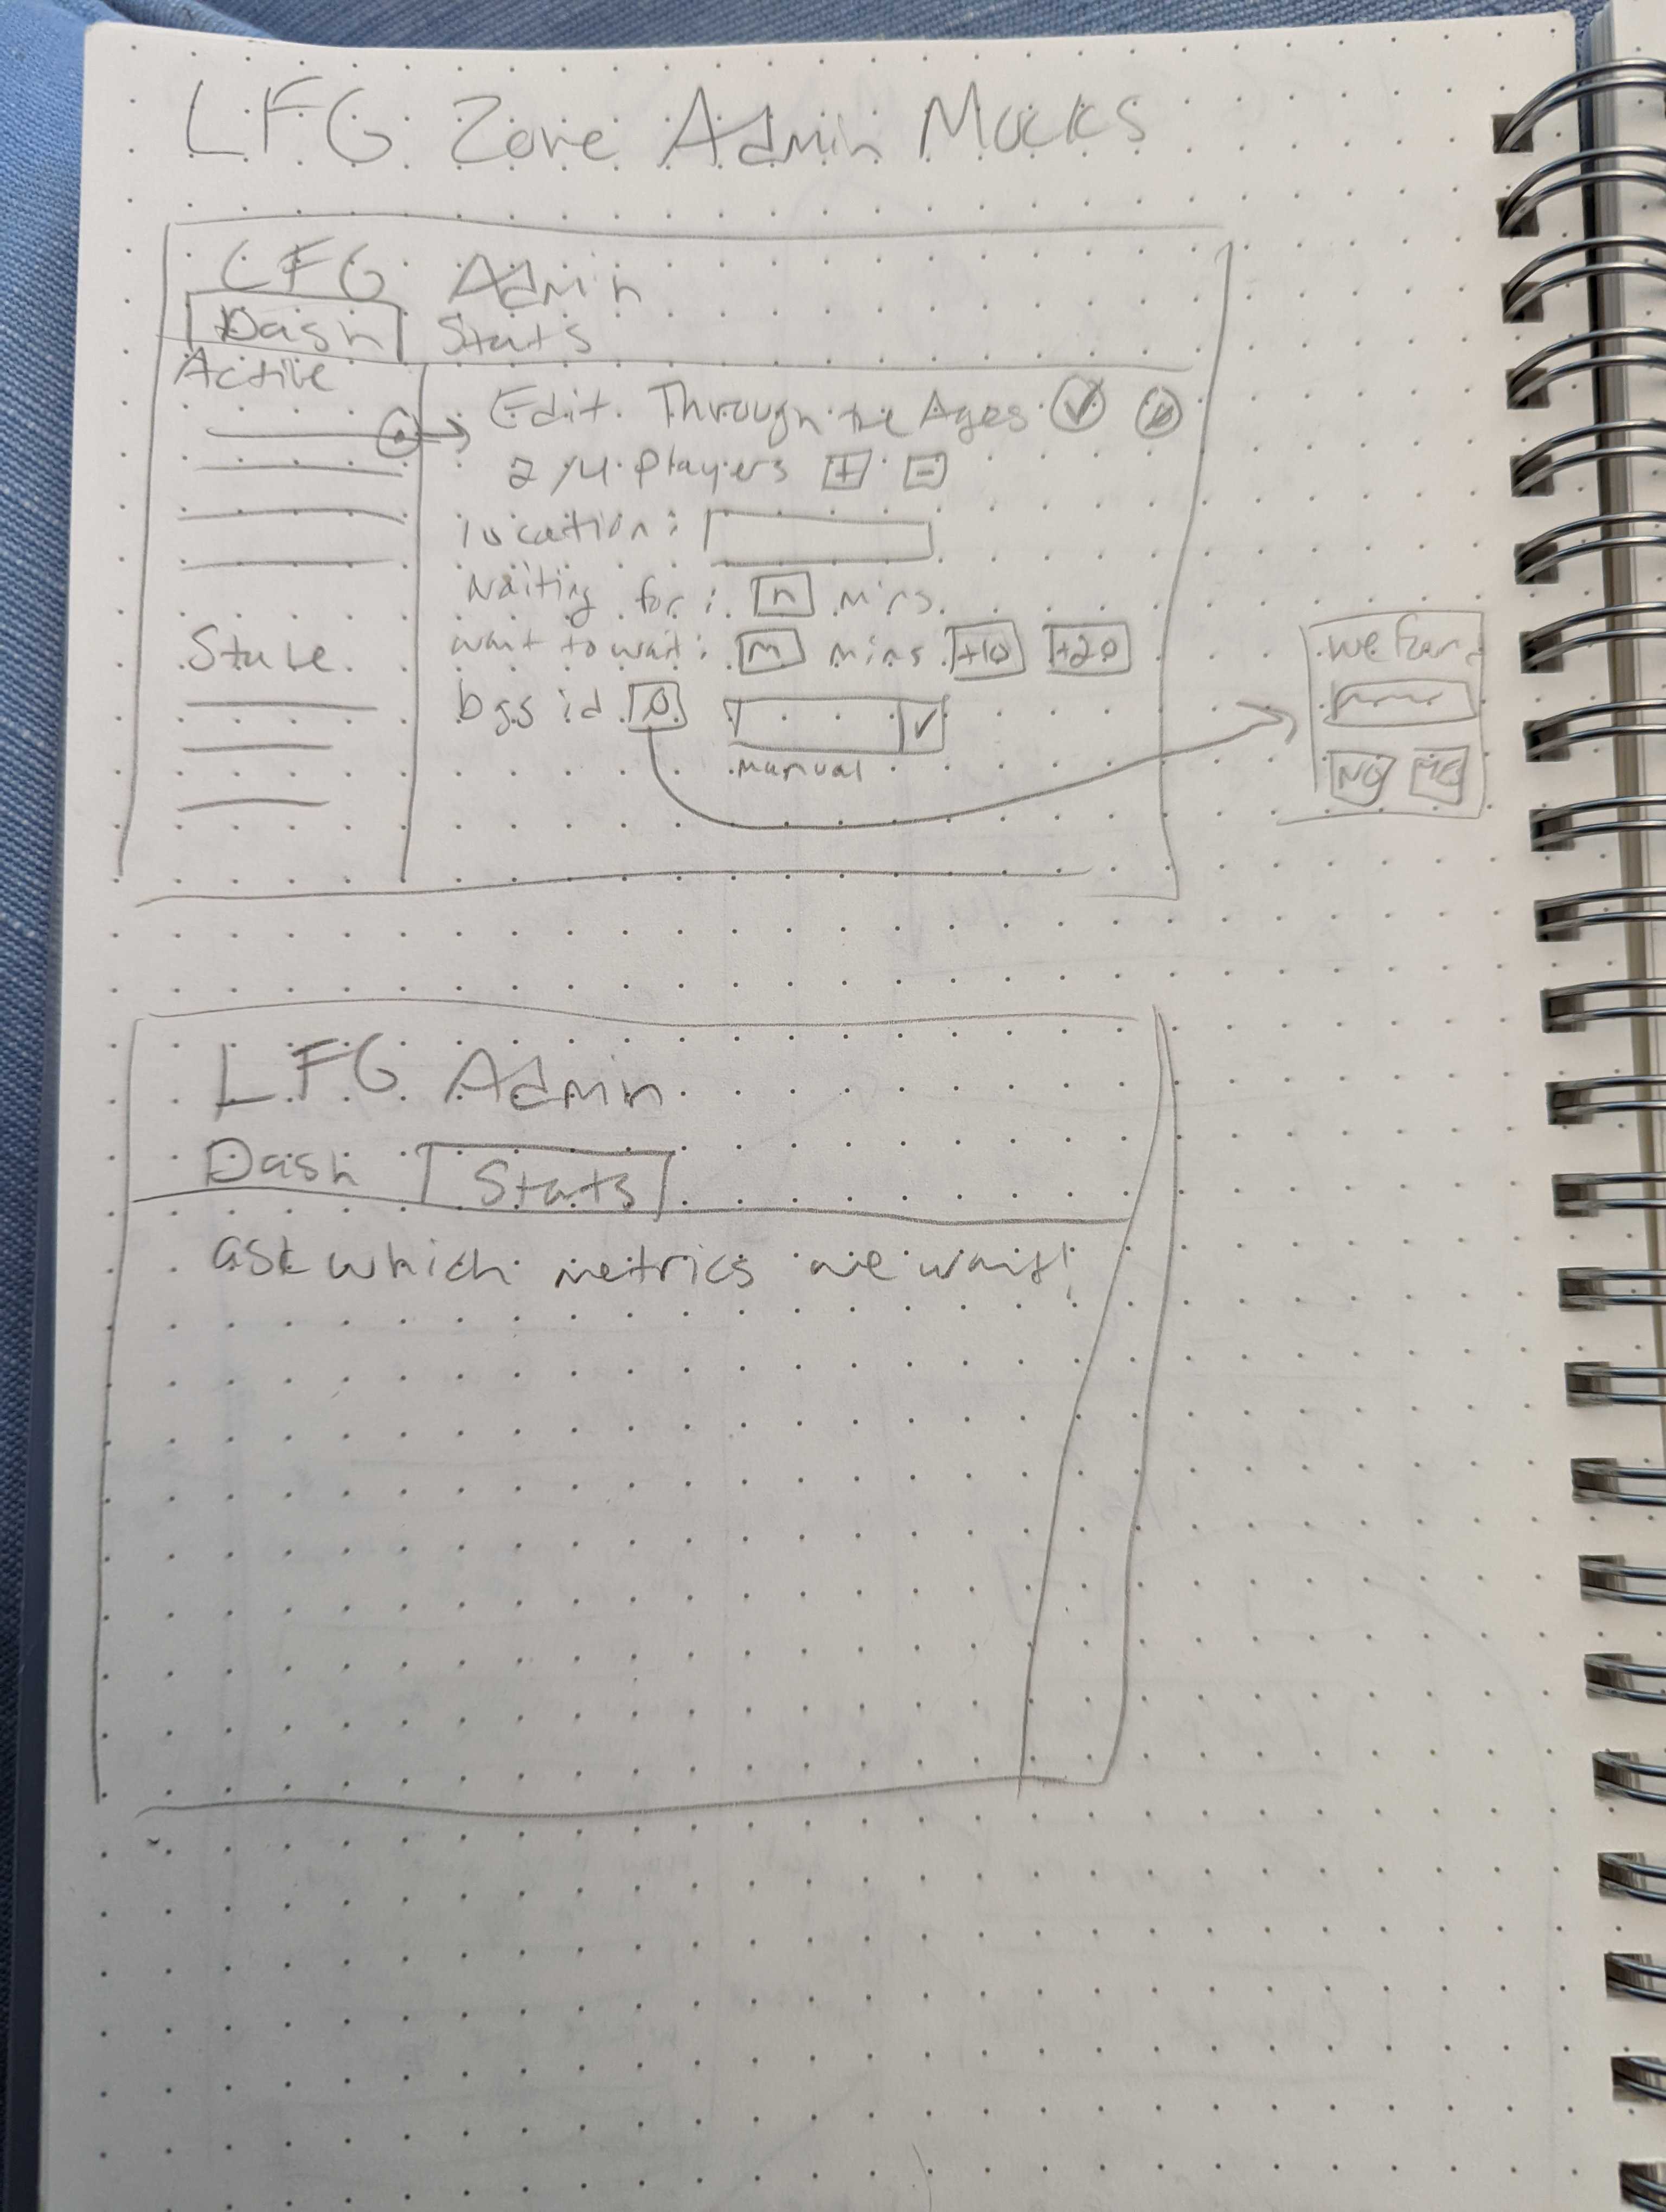 LFG Zone Admin Mocks
LFG Admin
Dash Stats
Active
Edit. Through the Ages
2/4 Players + -
location:
waiting for: n mins
want to wait: m mins +10 +20
bgs id
manual
Stale
we found
NO
LFG Admin
Dash Stats
ask which metrics we want!